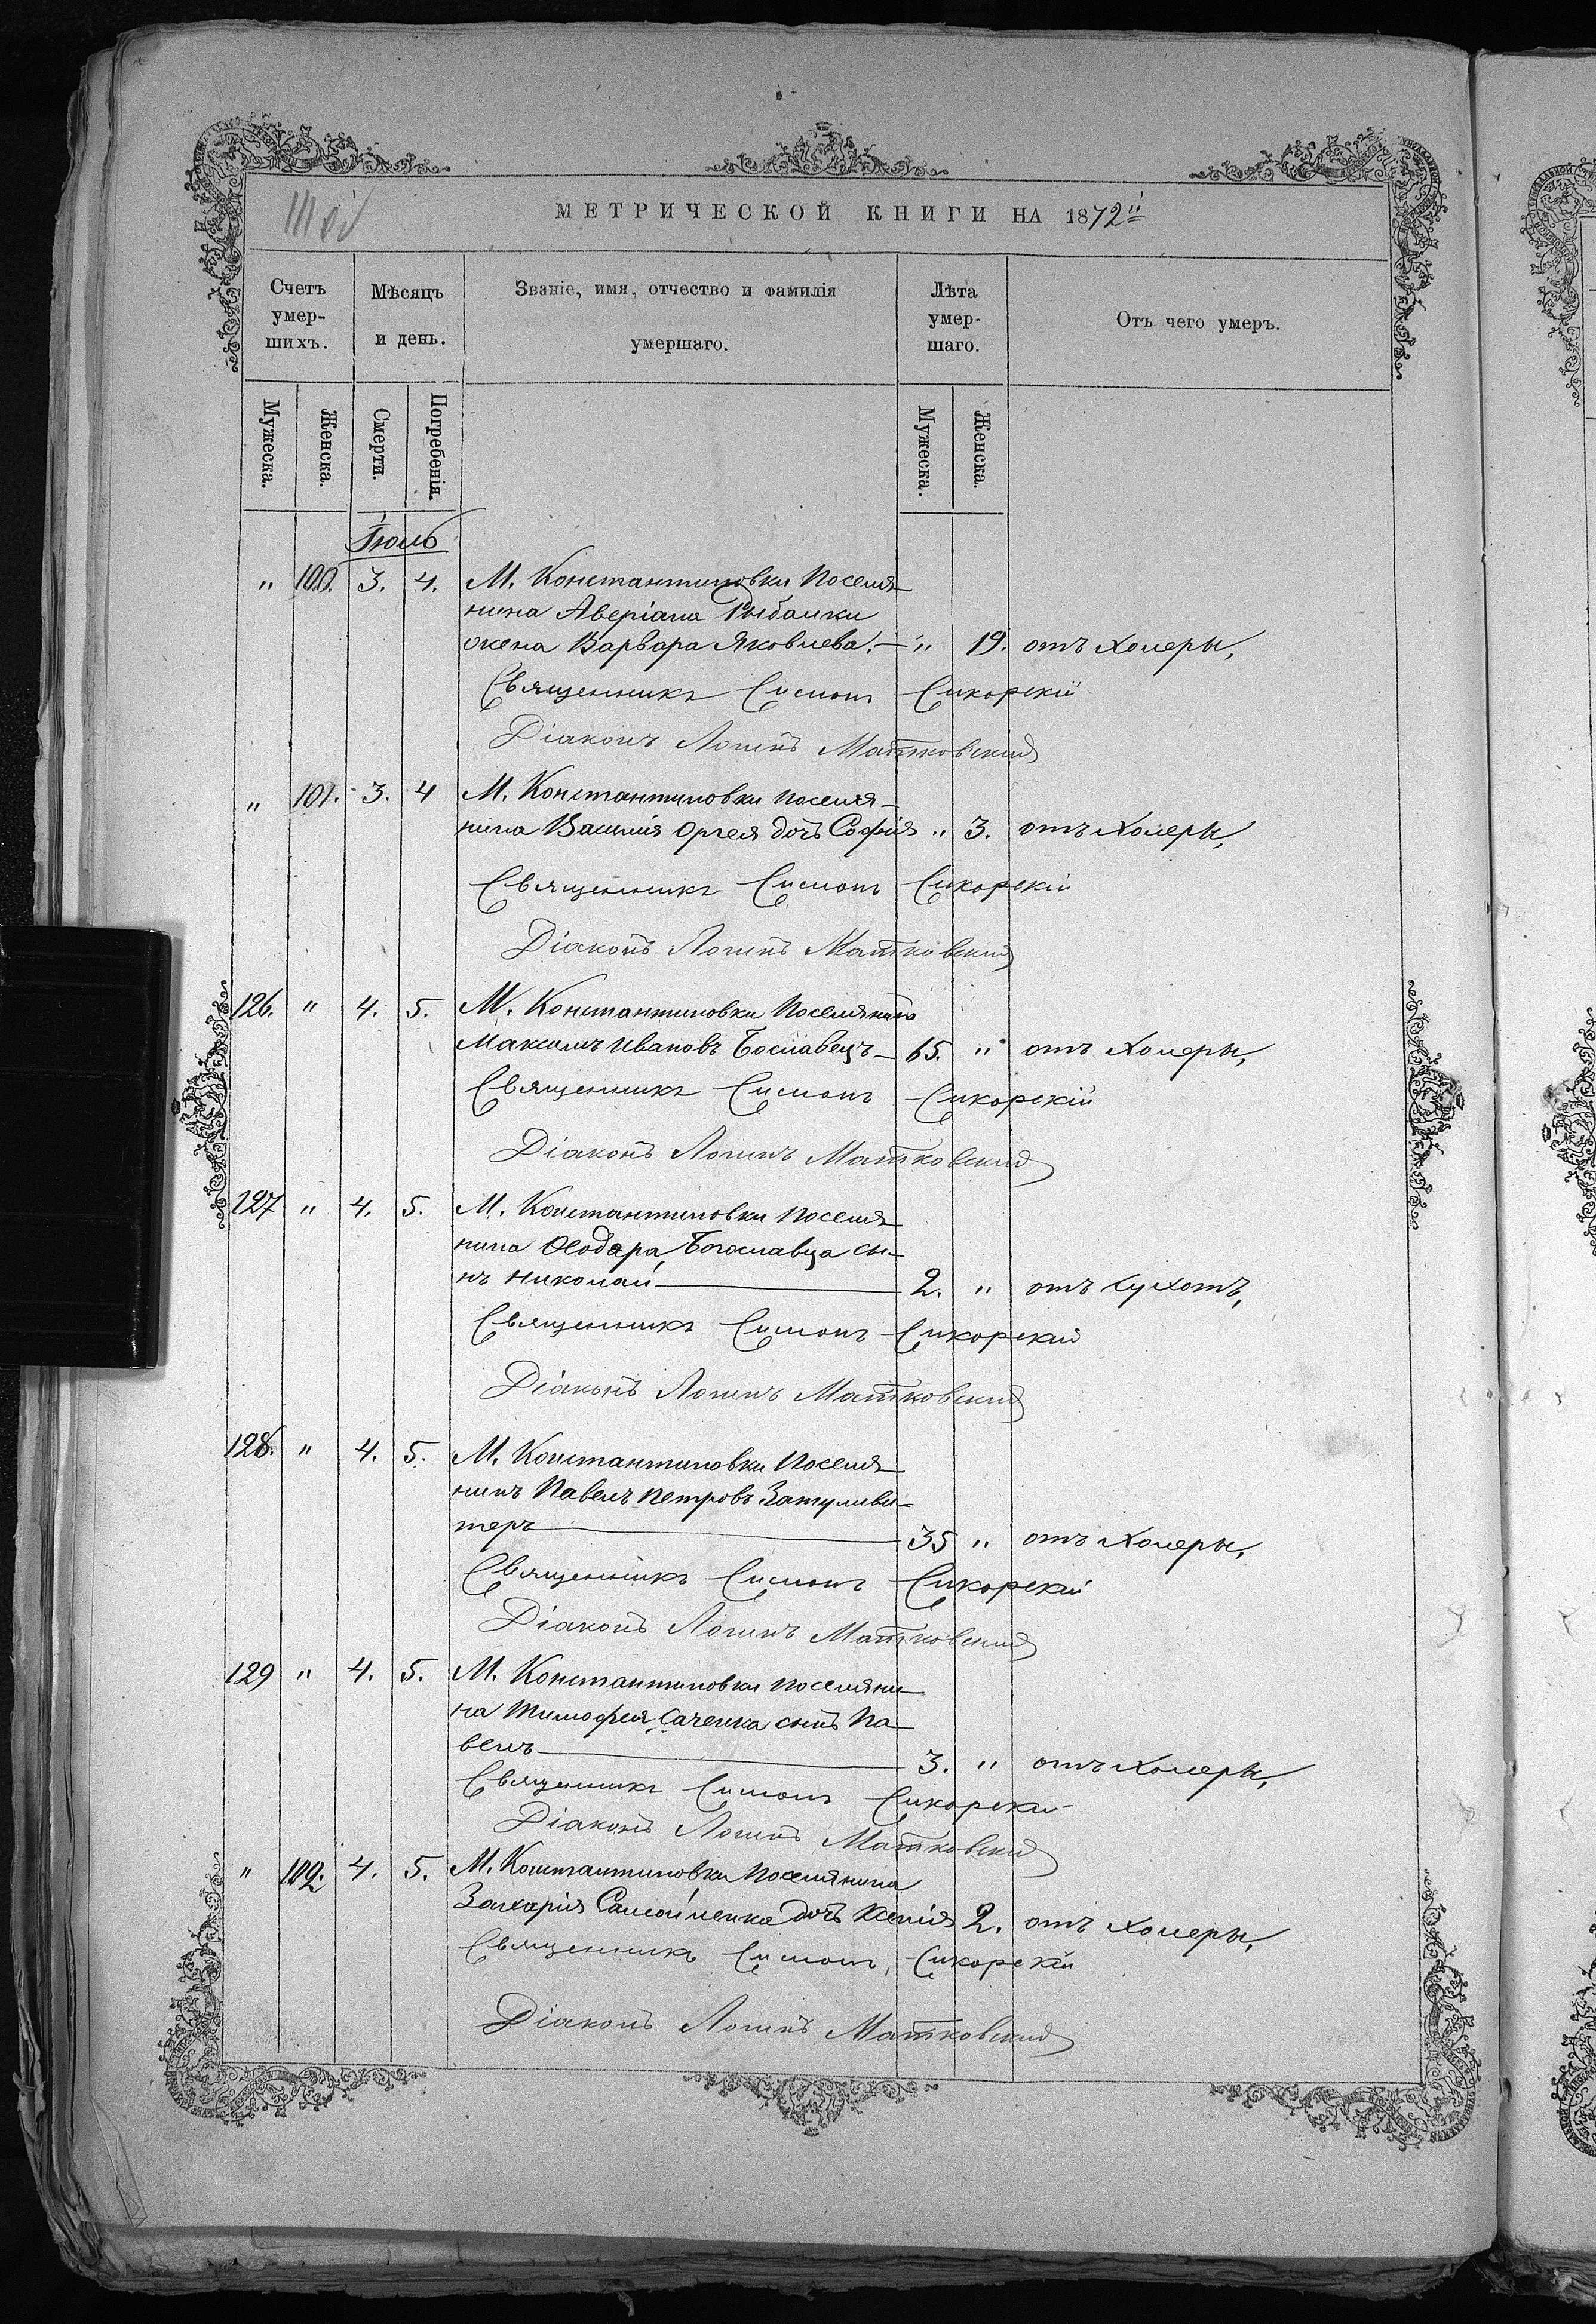 МЕТРИЧЕСКОЙ КНИГИ НА 1872й
Счетъ умер-шихъ. Мѣсяцъ и день. Званіе, имя, отчество и фамилія умершаго. Лѣта умер-шаго. Отъ чего умеръ.
Мужеска. Женска. Смерти. Погребенія. Мужеска. Женска.
Іюль
" 100. 3. 4. М. Константиновки поселя-
нина Аверіана Рыбалки
жена Варвара Яковлева. — " 19. отъ холеры,
Священникъ Симонъ Сикорскій
Діаконъ Логинъ Матковскій
" 101. 3. 4 М. Константиновки поселя-
нина Василія Оргея дочь Софія " 3. отъ холеры,
Священникъ Симонъ Сикорскій
Діаконъ Логинъ Матковскій
126. " 4. 5. М. Константиновки поселянинъ
Максимъ Ивановъ Бославецъ — 65. " отъ холеры,
Священникъ Симонъ Сикорскій
Діаконъ Логинъ Матковскій
127 " 4. 5. М. Константиновки поселя-
нина Ѳеодора Богославца сы-
нъ Николай — 2. " отъ сухотъ,
Священникъ Симонъ Сикорскій
Діаконъ Логинъ Матковскій
128. " 4. 5. М. Константиновки поселя-
нинъ Павелъ Петровъ Затуливи-
теръ — 35 " отъ холеры,
Священникъ Симонъ Сикорскій
Діаконъ Логинъ Матковскій
129 " 4. 5. М. Константиновки поселяни-
на Тимофея Саченка сынъ Па-
велъ — 3. " отъ холеры,
Священникъ Симонъ Сикорскій
Діаконъ Логинъ Матковскій
" 102. 4. 5. М. Константиновки поселянина
Захарія Самойленка дочь Ксенія 2. отъ холеры,
Священникъ Симонъ Сикорскій
Діаконъ Логинъ Матковскій